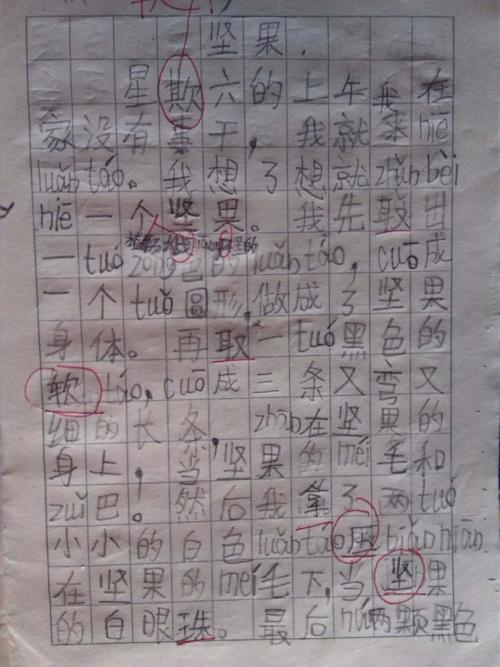 坚果.
星欺六的上午我在
家没有事干，我就来niē
luǎn táo。我想了想就zhǔn bèi
niē一个坚果。我先取出
一tuó 色的luǎn táo，cuō成
一个tuǒ圆形，做成了坚果
身体。再取一tuó黑色的
软táo。cuō成三条又弯又
细的长条，zhān在坚果的
身上，当坚果的méi毛和
zuǐ巴。然后我拿了两tuó
小小的白色luǎn táo压biǎn niān
在坚果的méi毛下，当坚果
的白眼珠。最后ná两颗黑色